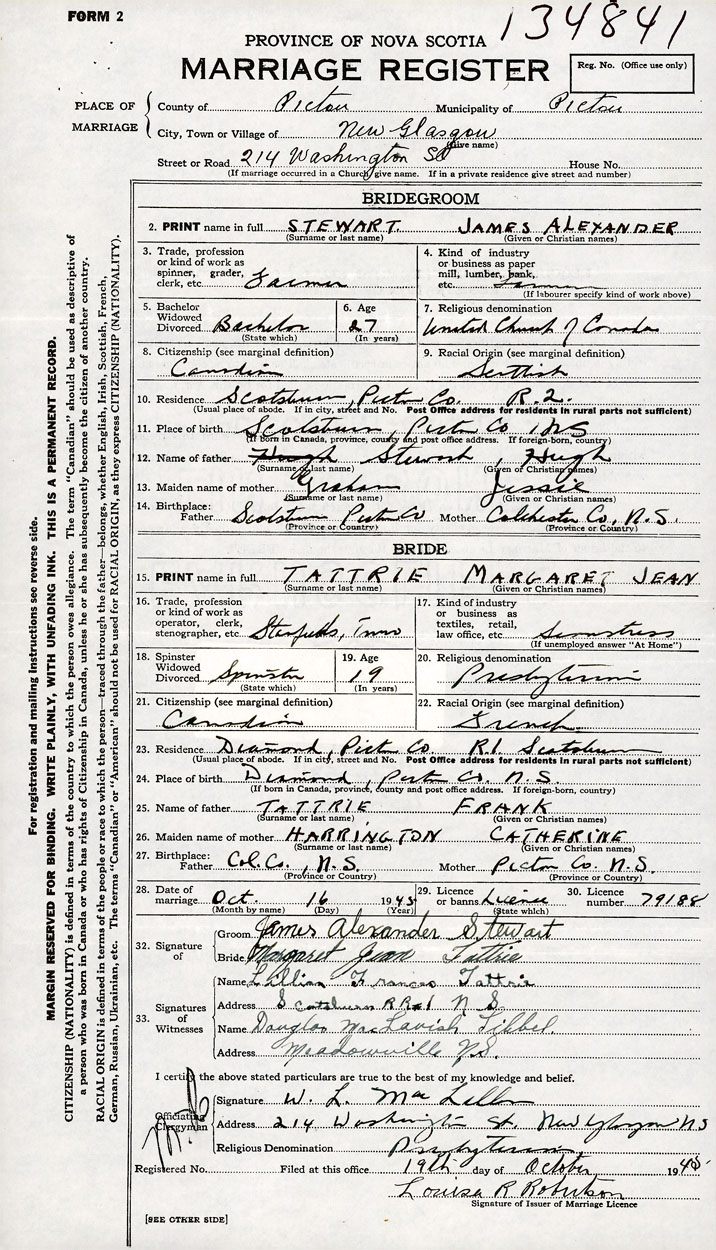 FORM 2
134841
PROVINCE OF NOVA SCOTIA
MARRIAGE REGISTER
Reg. No. (Office use only)
PLACE OF MARRIAGE
County of Pictou Municipality of Pictou
City, Town or Village of New Glasgow
(Give name)
Street or Road 214 Washington St House No.
(If marriage occurred in a Church give name. If in a private residence give street and number)
BRIDEGROOM
2. PRINT name in full STEWART JAMES ALEXANDER
(Surname or last name) (Given or Christian names)
3. Trade, profession or kind of work as spinner, grader, clerk, etc. Farmer
4. Kind of industry or business as paper mill, lumber, bank, etc.
(If labourer specify kind of work above)
5. Bachelor Widowed Divorced Bachelor
(State which)
6. Age 27
(In years)
7. Religious denomination United Church of Canada
8. Citizenship (see marginal definition) Canadian
9. Racial Origin (see marginal definition) Scottish
10. Residence Scotsburn, Pictou Co. R.2.
(Usual place of abode. If in city, street and No. Post Office address for residents in rural parts not sufficient)
11. Place of birth Scotsburn, Pictou Co. NS
(If born in Canada, province, county and post office address. If foreign-born, country)
12. Name of father Hugh Stewart, Hugh
(Surname or last name) (Given or Christian names)
13. Maiden name of mother Graham Jessie
(Surname or last name) (Given or Christian names)
14. Birthplace: Father Scotsburn Pictou Co Mother Colchester Co, N.S.
(Province or Country) (Province or Country)
BRIDE
15. PRINT name in full TATTRIE MARGARET JEAN
(Surname or last name) (Given or Christian names)
16. Trade, profession or kind of work as operator, clerk, stenographer, etc. Stanfields, Truro
17. Kind of industry or business as textiles, retail, law office, etc. Seamstress
(If unemployed answer "At Home")
18. Spinster Widowed Divorced Spinster
(State which)
19. Age 19
(In years)
20. Religious denomination Presbyterian
21. Citizenship (see marginal definition) Canadian
22. Racial Origin (see marginal definition) French
23. Residence Diamond, Pictou Co. R.1 Scotsburn
(Usual place of abode. If in city, street and No. Post Office address for residents in rural parts not sufficient)
24. Place of birth Diamond, Pictou Co. N.S.
(If born in Canada, province, county and post office address. If foreign-born, country)
25. Name of father TATTRIE FRANK
(Surname or last name) (Given or Christian names)
26. Maiden name of mother HARRINGTON CATHERINE
(Surname or last name) (Given or Christian names)
27. Birthplace: Father Col. Co., N.S. Mother Pictou Co. N.S.
(Province or Country) (Province or Country)
28. Date of marriage Oct. 16 1945
(Month by name) (Day) (Year)
29. Licence or banns Licence
(State which)
30. Licence number 79188
32. Signature of
Groom James Alexander Stewart
Bride Margaret Jean Tattrie
33. Signatures of Witnesses
Name Lillian Frances Tattrie
Address Scotsburn RR#1 N S
Name Douglas MacTavish
Address Meadowville N.S.
I certify the above stated particulars are true to the best of my knowledge and belief.
Officiating Clergyman
Signature W. L. Mac
Address 214 Washington St. New Glasgow N S
Religious Denomination Presbyterian
Registered No. Filed at this office 19th day of October 1945
Louisa R Robertson
Signature of Issuer of Marriage Licence
[SEE OTHER SIDE]
For registration and mailing instructions see reverse side.
MARGIN RESERVED FOR BINDING. WRITE PLAINLY, WITH UNFADING INK. THIS IS A PERMANENT RECORD.
CITIZENSHIP (NATIONALITY) is defined in terms of the country to which the person owes allegiance. The term "Canadian" should be used as descriptive of
a person who was born in Canada or who has rights of Citizenship in Canada, unless he or she has subsequently become the citizen of another country.
RACIAL ORIGIN is defined in terms of the people or race to which the person—traced through the father—belongs, whether English, Irish, Scottish, French,
German, Russian, Ukrainian, etc. The terms "Canadian" or "American" should not be used for RACIAL ORIGIN, as they express CITIZENSHIP (NATIONALITY).